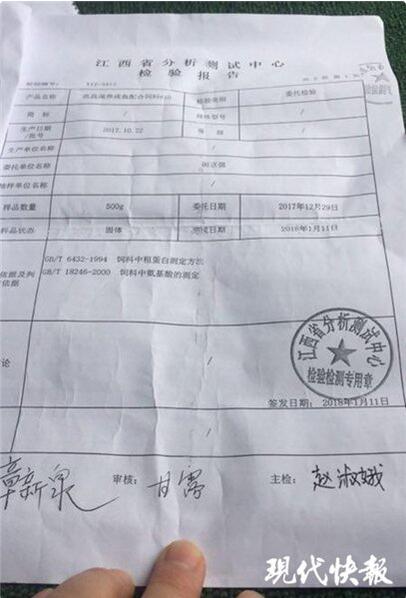 江西省分析测试中心
检验报告
产品名称 检验类别 委托检验
商 标 / 规格型号 /
生产日期/批号 2017.10.22 /
生产单位名称 /
委托单位名称
抽样单位名称 /
样品数量 500g 委托日期 2017年12月29日
样品状态 固体 完成日期 2018年1月11日
依据及判 GB/T 6432-1994 饲料中粗蛋白测定方法
依据 GB/T 18246-2000 饲料中氨基酸的测定
论 /
江西省分析测试中心
检验检测专用章
签发日期: 2018年1月11日
/
章新泉 审核: 甘露 主检: 赵淑娥
现代快報